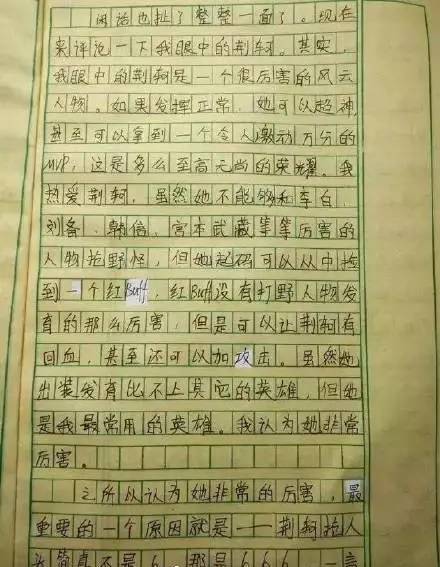 闲话也扯了整整一面了。现在
来评论一下我眼中的荆轲。其实，
我眼中的荆轲是一个很厉害的风云
人物。如果发挥正常，她可以超神，
甚至可以拿到一个令人激动万分的
MVP，这是多么至高无尚的荣耀。我
热爱荆轲，虽然她不能够和李白、
刘备、韩信、宫本武藏等等厉害的
人物抢野怪，但她起码可以从中抢
到一个红Buff，红Buff没有打野人物发
育的那么厉害，但是可以让荆轲有
回血，甚至还可以加攻击。虽然她
出装发育比不上其它的英雄，但她
是我最常用的英雄。我认为她非常
厉害。
之所以认为她非常的厉害，最
重要的一个原因就是——荆轲拉人
头简直不是6，那是666，一言